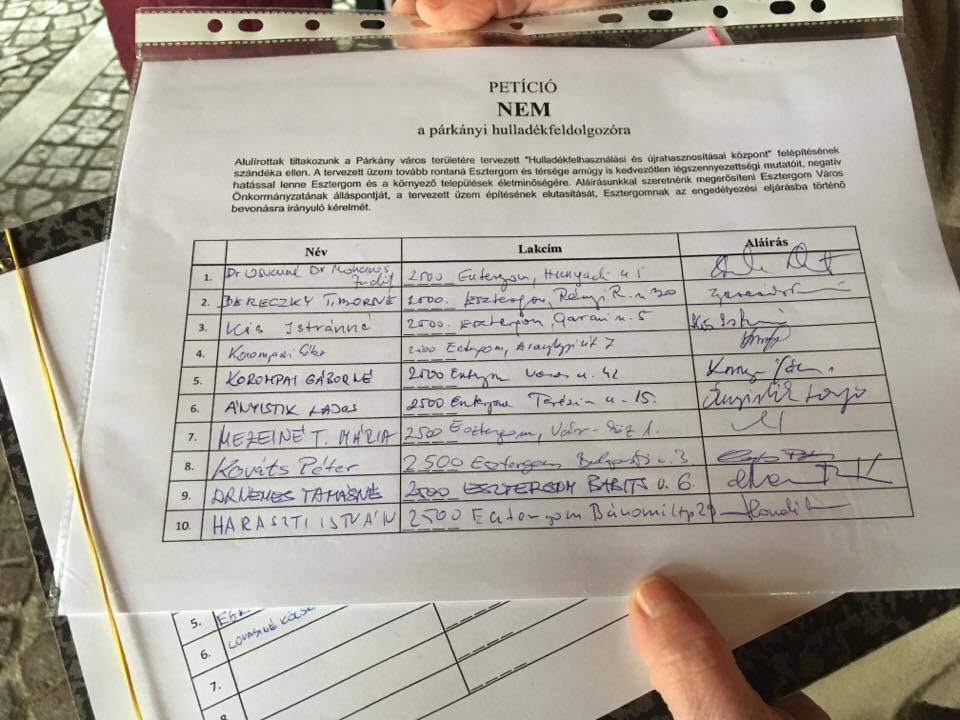 PETÍCIÓ
NEM
a párkányi hulladékfeldolgozóra
Alulírottak tiltakozunk a Párkány város területére tervezett "Hulladékfelhasználási és újrahasznosításai központ" felépítésének
szándéka ellen. A tervezett üzem tovább rontaná Esztergom és térsége amúgy is kedvezőtlen légszennyezettségi mutatóit, negatív
hatással lenne Esztergom és a környező települések életminőségére. Aláírásunkkal szeretnénk megerősíteni Esztergom Város
Önkormányzatának álláspontját, a tervezett üzem építésének elutasítását, Esztergomnak az engedélyezési eljárásba történő
bevonásra irányuló kérelmét.
Név Lakcím Aláírás
1. Dr Dr Mohainos Judit 2500 Esztergom, Hunyadi u 5
2. BERECZKY TIBORNÉ 2500. Esztergom, Rényi R. u 30
3. Kis Istvánné 2500. Esztergom, Garami u. 5 Kis Istvánné
4. Korompai 2500 Esztergom, 7
5. KOROMPAI GÁBORNÉ 2500 Esztergom u. 42
6. ÁNYISTIK LAJOS 2500 Esztergom Terézia u. 15. Ányistik Lajos
7. MEZEINÉ T. MÁRIA 2500 Esztergom, 1.
8. Kováts Péter 2500 Esztergom u. 3
9. DR NEMES TAMÁSNÉ 2500 ESZTERGOM BABITS U. 6.
10. HARASZTI ISTVÁN 2500 Esztergom
5.
6. LOVASINÉ
7.
8